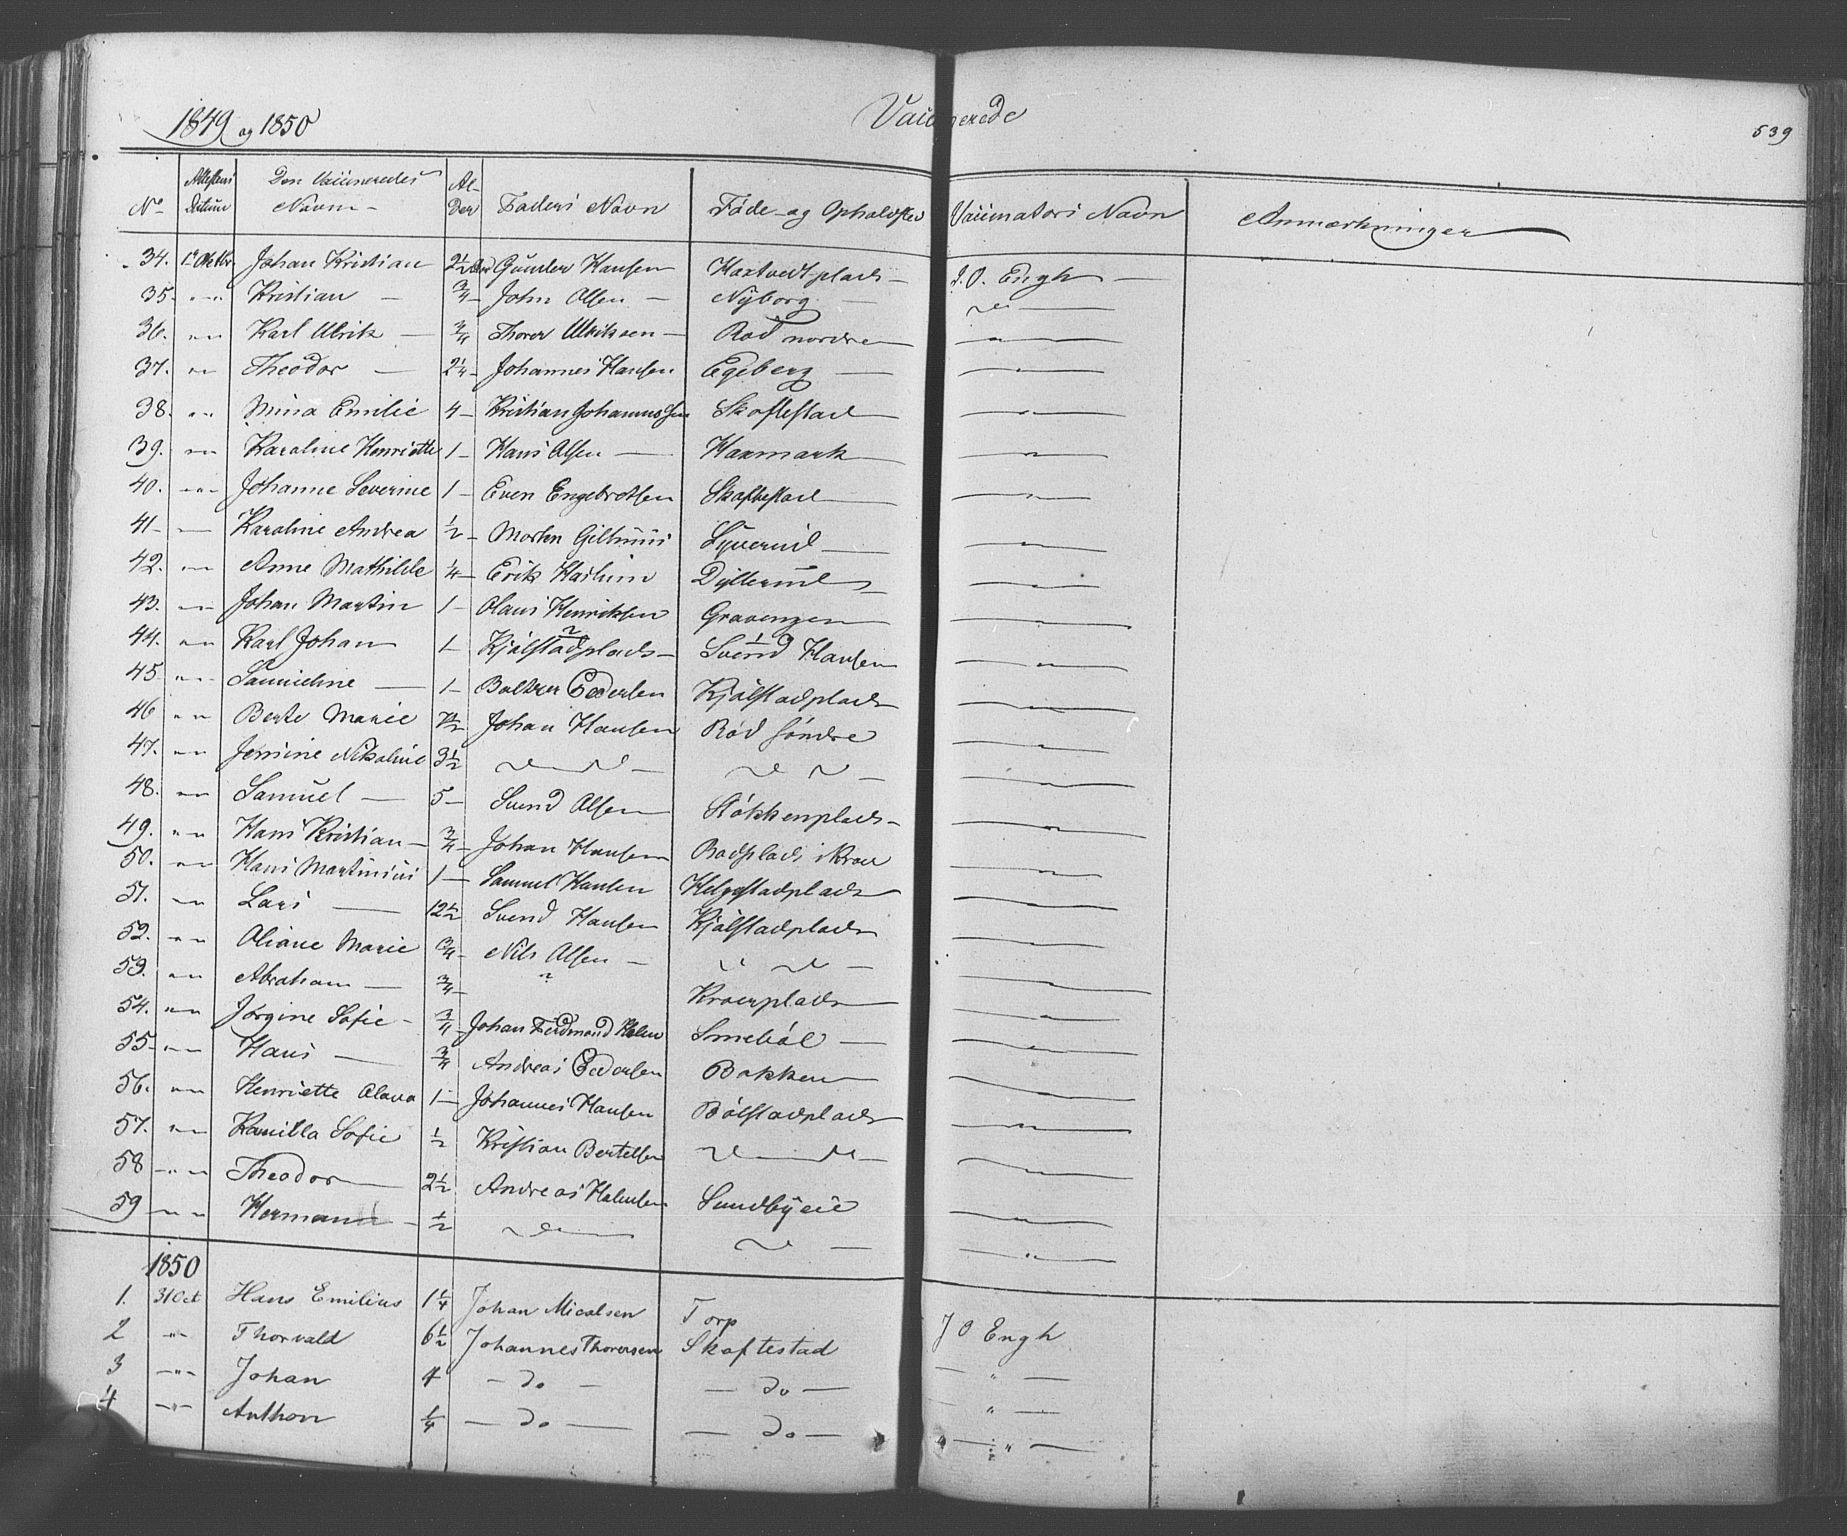 1849 og 1850 Vaccinerede 539
No Attestens Datum Den Vaccineredes Navn Alder Faders Navn Føde- og Opholdsted Vaccinatørs Navn Anmærkninger
34. 1ste Oktbr. Johan Kristian 2½ Aar Gunder Hansen Haxtvedtplads J. O. Engh
35. " Kristian ¾ John Olsen Nyborg do
36. " Karl Ulrik ¾ Thorer Ulriksen Rød nordre "
37. " Theodor 2¼ Johannes Hansen Egeberg "
38. " Mina Emilie 4 Kristian Johannessen Skoftestad "
39. " Karoline Henriette 1 Hans Olsen Haxmark "
40. " Johanne Severine 1 Even Engebretsen Skoftestad "
41 " Karoline Andrea ½ Morten Syverud "
42. " Anne Mathilde ¼ Erik Dyllerud "
43. " Johan Martin 1 Olaus Henriksen Gravengen "
44. " Karl Johan 1 Kjølstadplads Svend Hansen "
45 " 1 Baltzer Pedersen Kjølstadplads "
46 " Berte Marie 7½ Johan Hansen Rød søndre "
47. " Jensine Nikoline 3½ do do "
48. " Samuel 5 Svend Olsen Støkkenplads "
49. " Hans Kristian ¾ Johan Hansen Rødsplads i Kroer "
50. " Hans Martinius 1 Samuel Hansen Helgestadplads "
51. " Lars 12½ Svend Hansen Kjølstadplads "
52. " Oliane Marie ¾ Nils Olsen do "
53. " Abraham ¾ " Kroerplads "
54. " Jørgine Sofie ¾ Johan Ferdinand Holm Smebøl "
55 " Hans ¾ Andreas Pedersen Bakken "
56. " Henriette Olava 1 Johannes Hansen Bølstadplads "
57. " Kamilla Sofie ½ Kristian Bertelsen do "
58 " Theodor 2½ Andreas Halvorsen Sundbyeie "
59 " Hermann ½ do do "
1850
1. 31 Oct Hans Emilius 1¼ Johan Micalsen Torp J O Engh
2 " Thorvald 6½ Johannes Thoresen Skoftestad "
3 " Johan 4 do do "
4 " Anthon ¼ do do "